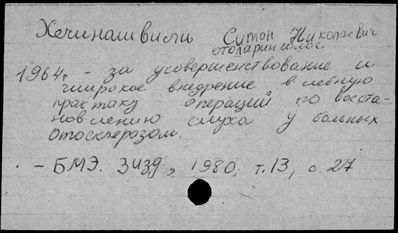 Хечинашвили Симон Николаевич
отоларинголог
1964г - за усовершенствование и
широкое внедрение в лебную
практику операций по восста-
новлению слуха у больных
отосклерозом.
- БМЭ. 3изд, 1980, т.13, с.27